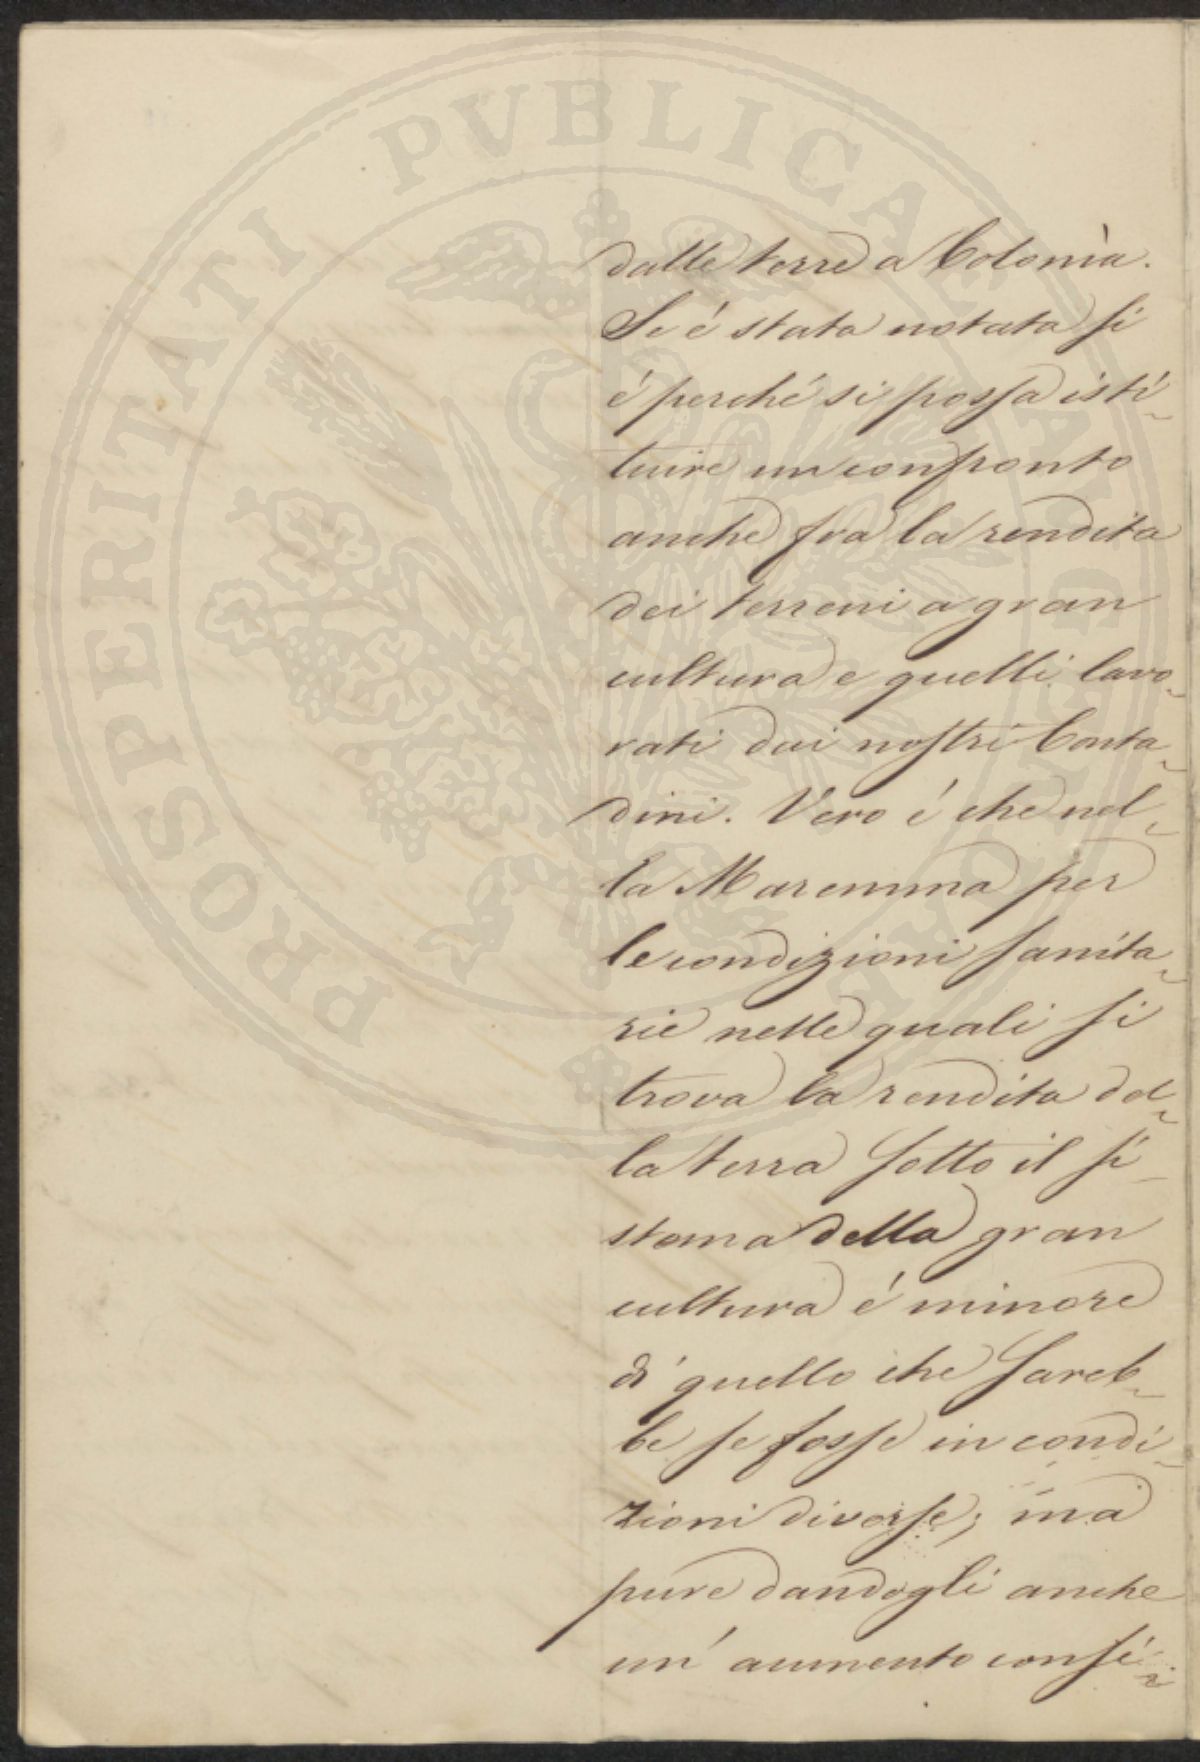 dalle terre a Colonìa.
Se é stata notata si
é perché si possa isti-
tuire un confronto
anche fra la rendita
dei terreni a gran
cultura e quelli lavo-
rati dai nostri Conta-
dini. Vero é che nel-
la Maremma per
le condizioni sanita-
rie nelle quali si
trova la rendita del-
la terra sotto il si-
stema della gran
cultura é minore
di quello che sareb-
be se fosse in condi-
zioni diverse; ma
pure dandogli anche
un' aumento consi-
PROSPERITATI PVBLICAE AVGENDAE